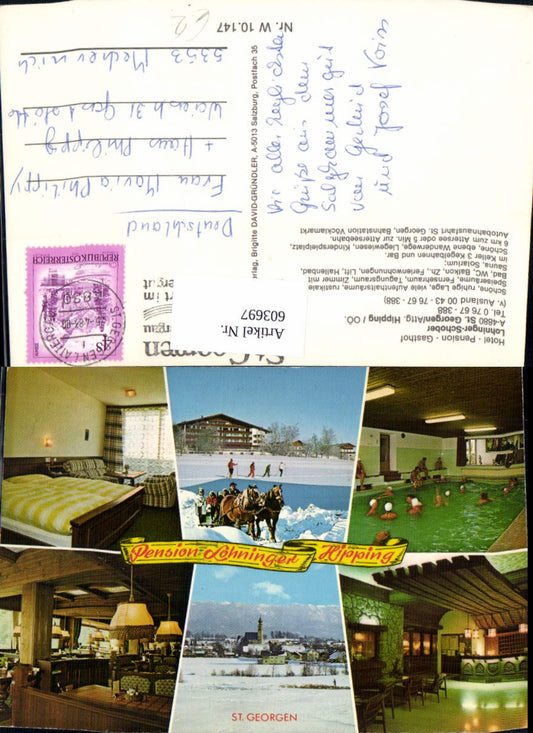 Hotel - Pension - Gasthof
Lohninger-Schober
A-4880 St. Georgen/Attg. Hipping / OÖ.
Tel. 0 76 67 - 388
(v. Ausland 00 43 - 76 67 - 388)
Schöne, ruhige Lage, viele Aufenthaltsräume, rustikale
Speiseräume, Fernsehraum, Tagungsraum, Zimmer mit
Bad, WC, Balkon, Zh., Ferienwohnungen, Lift, Hallenbad,
Sauna, Solarium,
im Keller 3 Kegelbahnen und Bar.
Schöne, ebene Wanderwege, Liegewiesen, Kinderspielplatz,
6 km zum Attersee oder 5 Min. zur Atterseebahn.
Autobahnausfahrt St. Georgen, Bahnstation Vöcklamarkt
Artikel Nr.
603697
und Josef Voiss
von Gerlind
Salzkammergut
Grüße aus dem
Die aller herzlichsten
erlag, Brigitte DAVID-GRÜNDLER, A-5013 Salzburg, Postfach 35
Nr. W 10.147
REPUBLIK ÖSTERREICH
Deutschland
Frau Maria Philippy
+ Hans Philippy
5353 Mechernich
Pension Lohninger Hipping
ST. GEORGEN